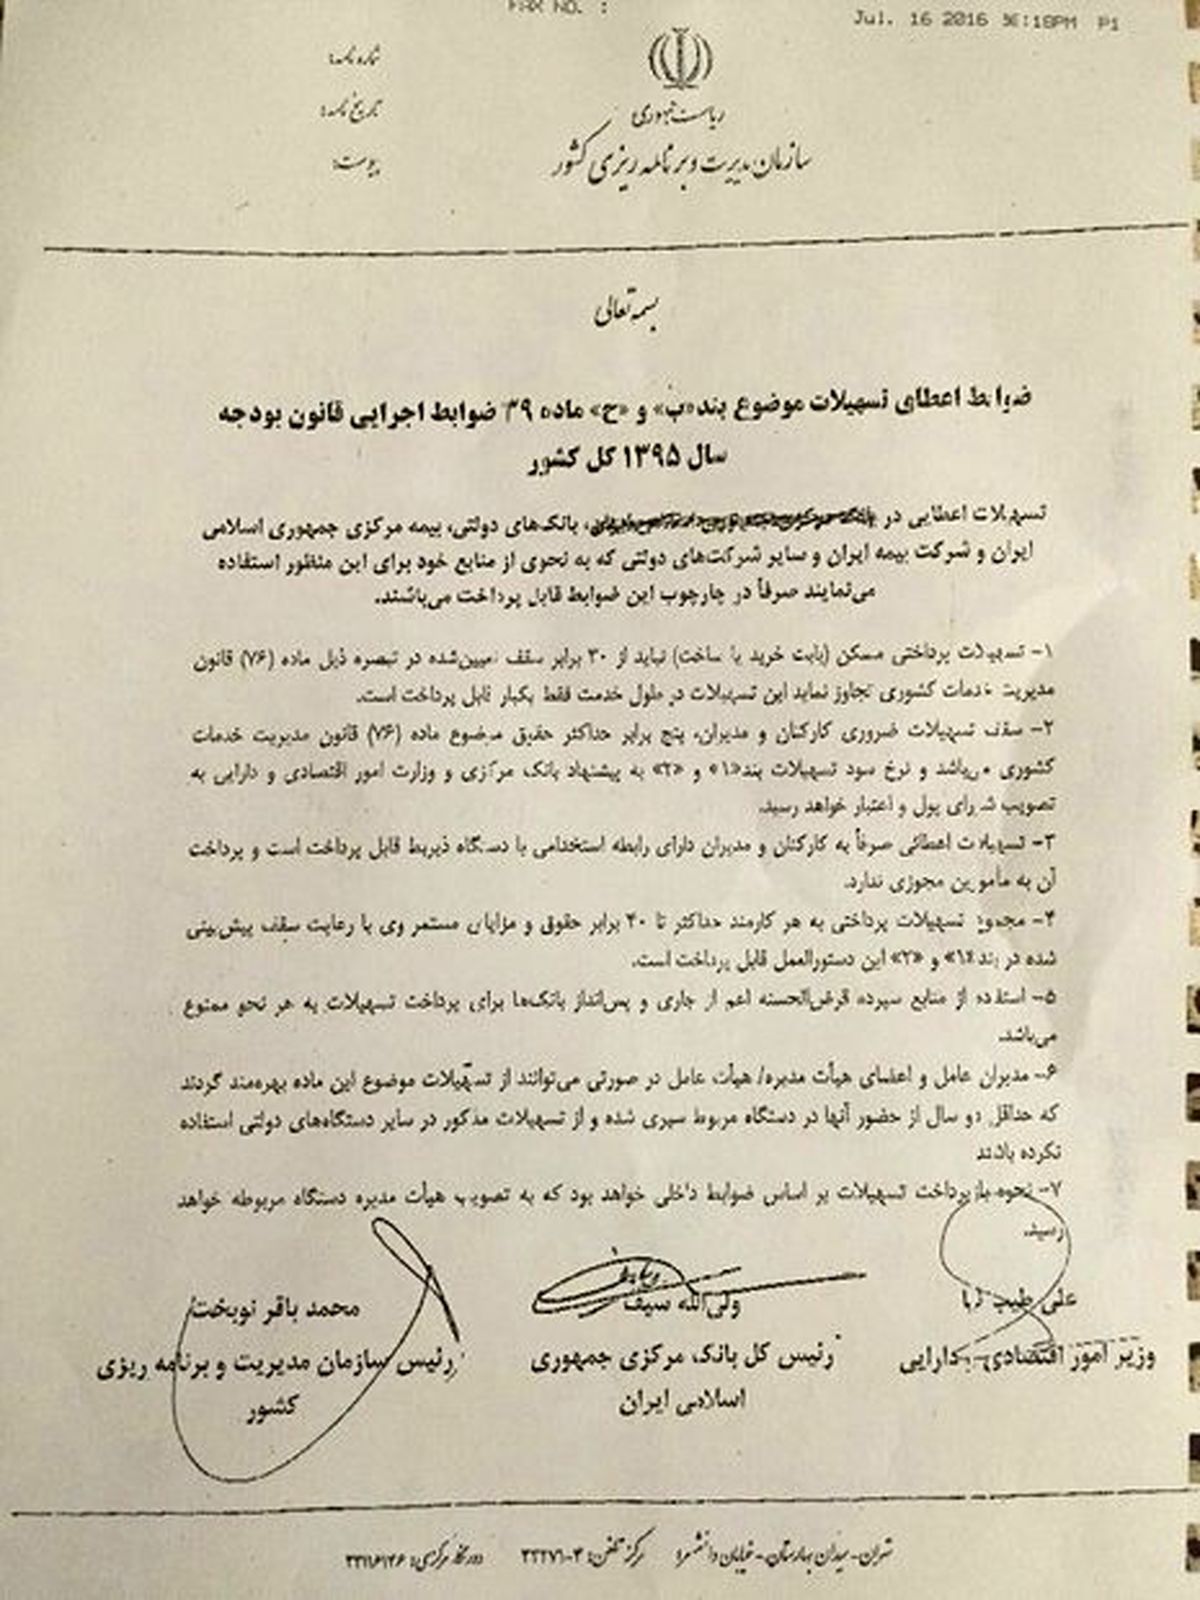 FAX NO. :
Jul. 16 2016 :18PM P1
شماره نامه:
تاریخ نامه:
پیوست:
ریاست جمهوری
سازمان مدیریت و برنامه ریزی کشور
بسمه تعالی
ضوابط اعطای تسهیلات موضوع بند«ب» و «ح» ماده ۳۹ ضوابط اجرایی قانون بودجه
سال ۱۳۹۵ کل کشور
تسهیلات اعطایی در ، بانک‌های دولتی، بیمه مرکزی جمهوری اسلامی
ایران و شرکت بیمه ایران و سایر شرکت‌های دولتی که به نحوی از منابع خود برای این منظور استفاده
می‌نمایند صرفاً در چارچوب این ضوابط قابل پرداخت می‌باشند.
۱- تسهیلات پرداختی مسکن (بابت خرید یا ساخت) نباید از ۳۰ برابر سقف تعیین‌شده در تبصره ذیل ماده (۷۶) قانون
مدیریت خدمات کشوری تجاوز نماید این تسهیلات در طول خدمت فقط یکبار قابل پرداخت است.
۲- سقف تسهیلات ضروری کارکنان و مدیران، پنج برابر حداکثر حقوق موضوع ماده (۷۶) قانون مدیریت خدمات
کشوری می‌باشد و نرخ سود تسهیلات بند«۱» و «۲» به پیشنهاد بانک مرکزی و وزارت امور اقتصادی و دارایی به
تصویب شورای پول و اعتبار خواهد رسید.
۳- تسهیلات اعطائی صرفاً به کارکنان و مدیران دارای رابطه استخدامی با دستگاه ذیربط قابل پرداخت است و پرداخت
آن به مأمورین مجوزی ندارد.
۴- مجموع تسهیلات پرداختی به هر کارمند حداکثر تا ۴۰ برابر حقوق و مزایای مستمر وی با رعایت سقف پیش‌بینی
شده در بند «۱» و «۲» این دستورالعمل قابل پرداخت است.
۵- استفاده از منابع سپرده قرض‌الحسنه اعم از جاری و پس‌انداز بانک‌ها برای پرداخت تسهیلات به هر نحو ممنوع
می‌باشد.
۶- مدیران عامل و اعضای هیأت مدیره/ هیأت عامل در صورتی می‌توانند از تسهیلات موضوع این ماده بهره‌مند گردند
که حداقل دو سال از حضور آنها در دستگاه مربوط سپری شده و از تسهیلات مذکور در سایر دستگاه‌های دولتی استفاده
نکرده باشند
۷- نحوه بازپرداخت تسهیلات بر اساس ضوابط داخلی خواهد بود که به تصویب هیأت مدیره دستگاه مربوطه خواهد
رسید.
علی طیب نیا
وزیر امور اقتصادی و دارایی
ولی‌الله سیف
رئیس کل بانک مرکزی جمهوری
اسلامی ایران
محمد باقر نوبخت
رئیس سازمان مدیریت و برنامه ریزی
کشور
تهران- میدان بهارستان- خیابان دانشسرا مرکز تلفن: ۴-۳۳۲۷۱ دورنگار مرکزی: